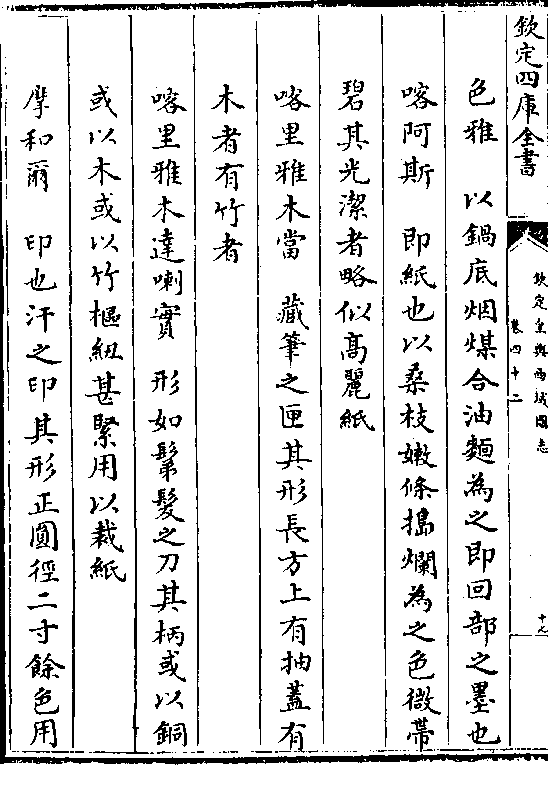 欽定四庫全書
欽定皇輿西域圖志
卷四十二
色雅　以鍋底烟煤合油麵為之即回部之墨也
喀阿斯　即紙也以桑枝嫩條搗爛為之色微帶
碧其光潔者略似高麗紙
喀里雅木當　藏筆之匣其形長方上有抽蓋有
木者有竹者
喀里雅木達喇實　形如鬀髮之刀其柄或以銅
或以木或以竹樞紐甚緊用以裁紙
摩和爾　印也汗之印其形正圓徑二寸餘色用